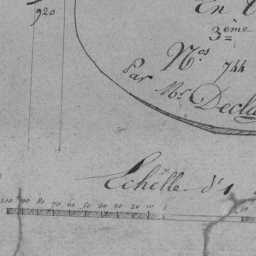 920
En
3ème
Nos 744
Par Mr Decla
Echelle d'1
100 90 80 70 60 50 40 30 20 10